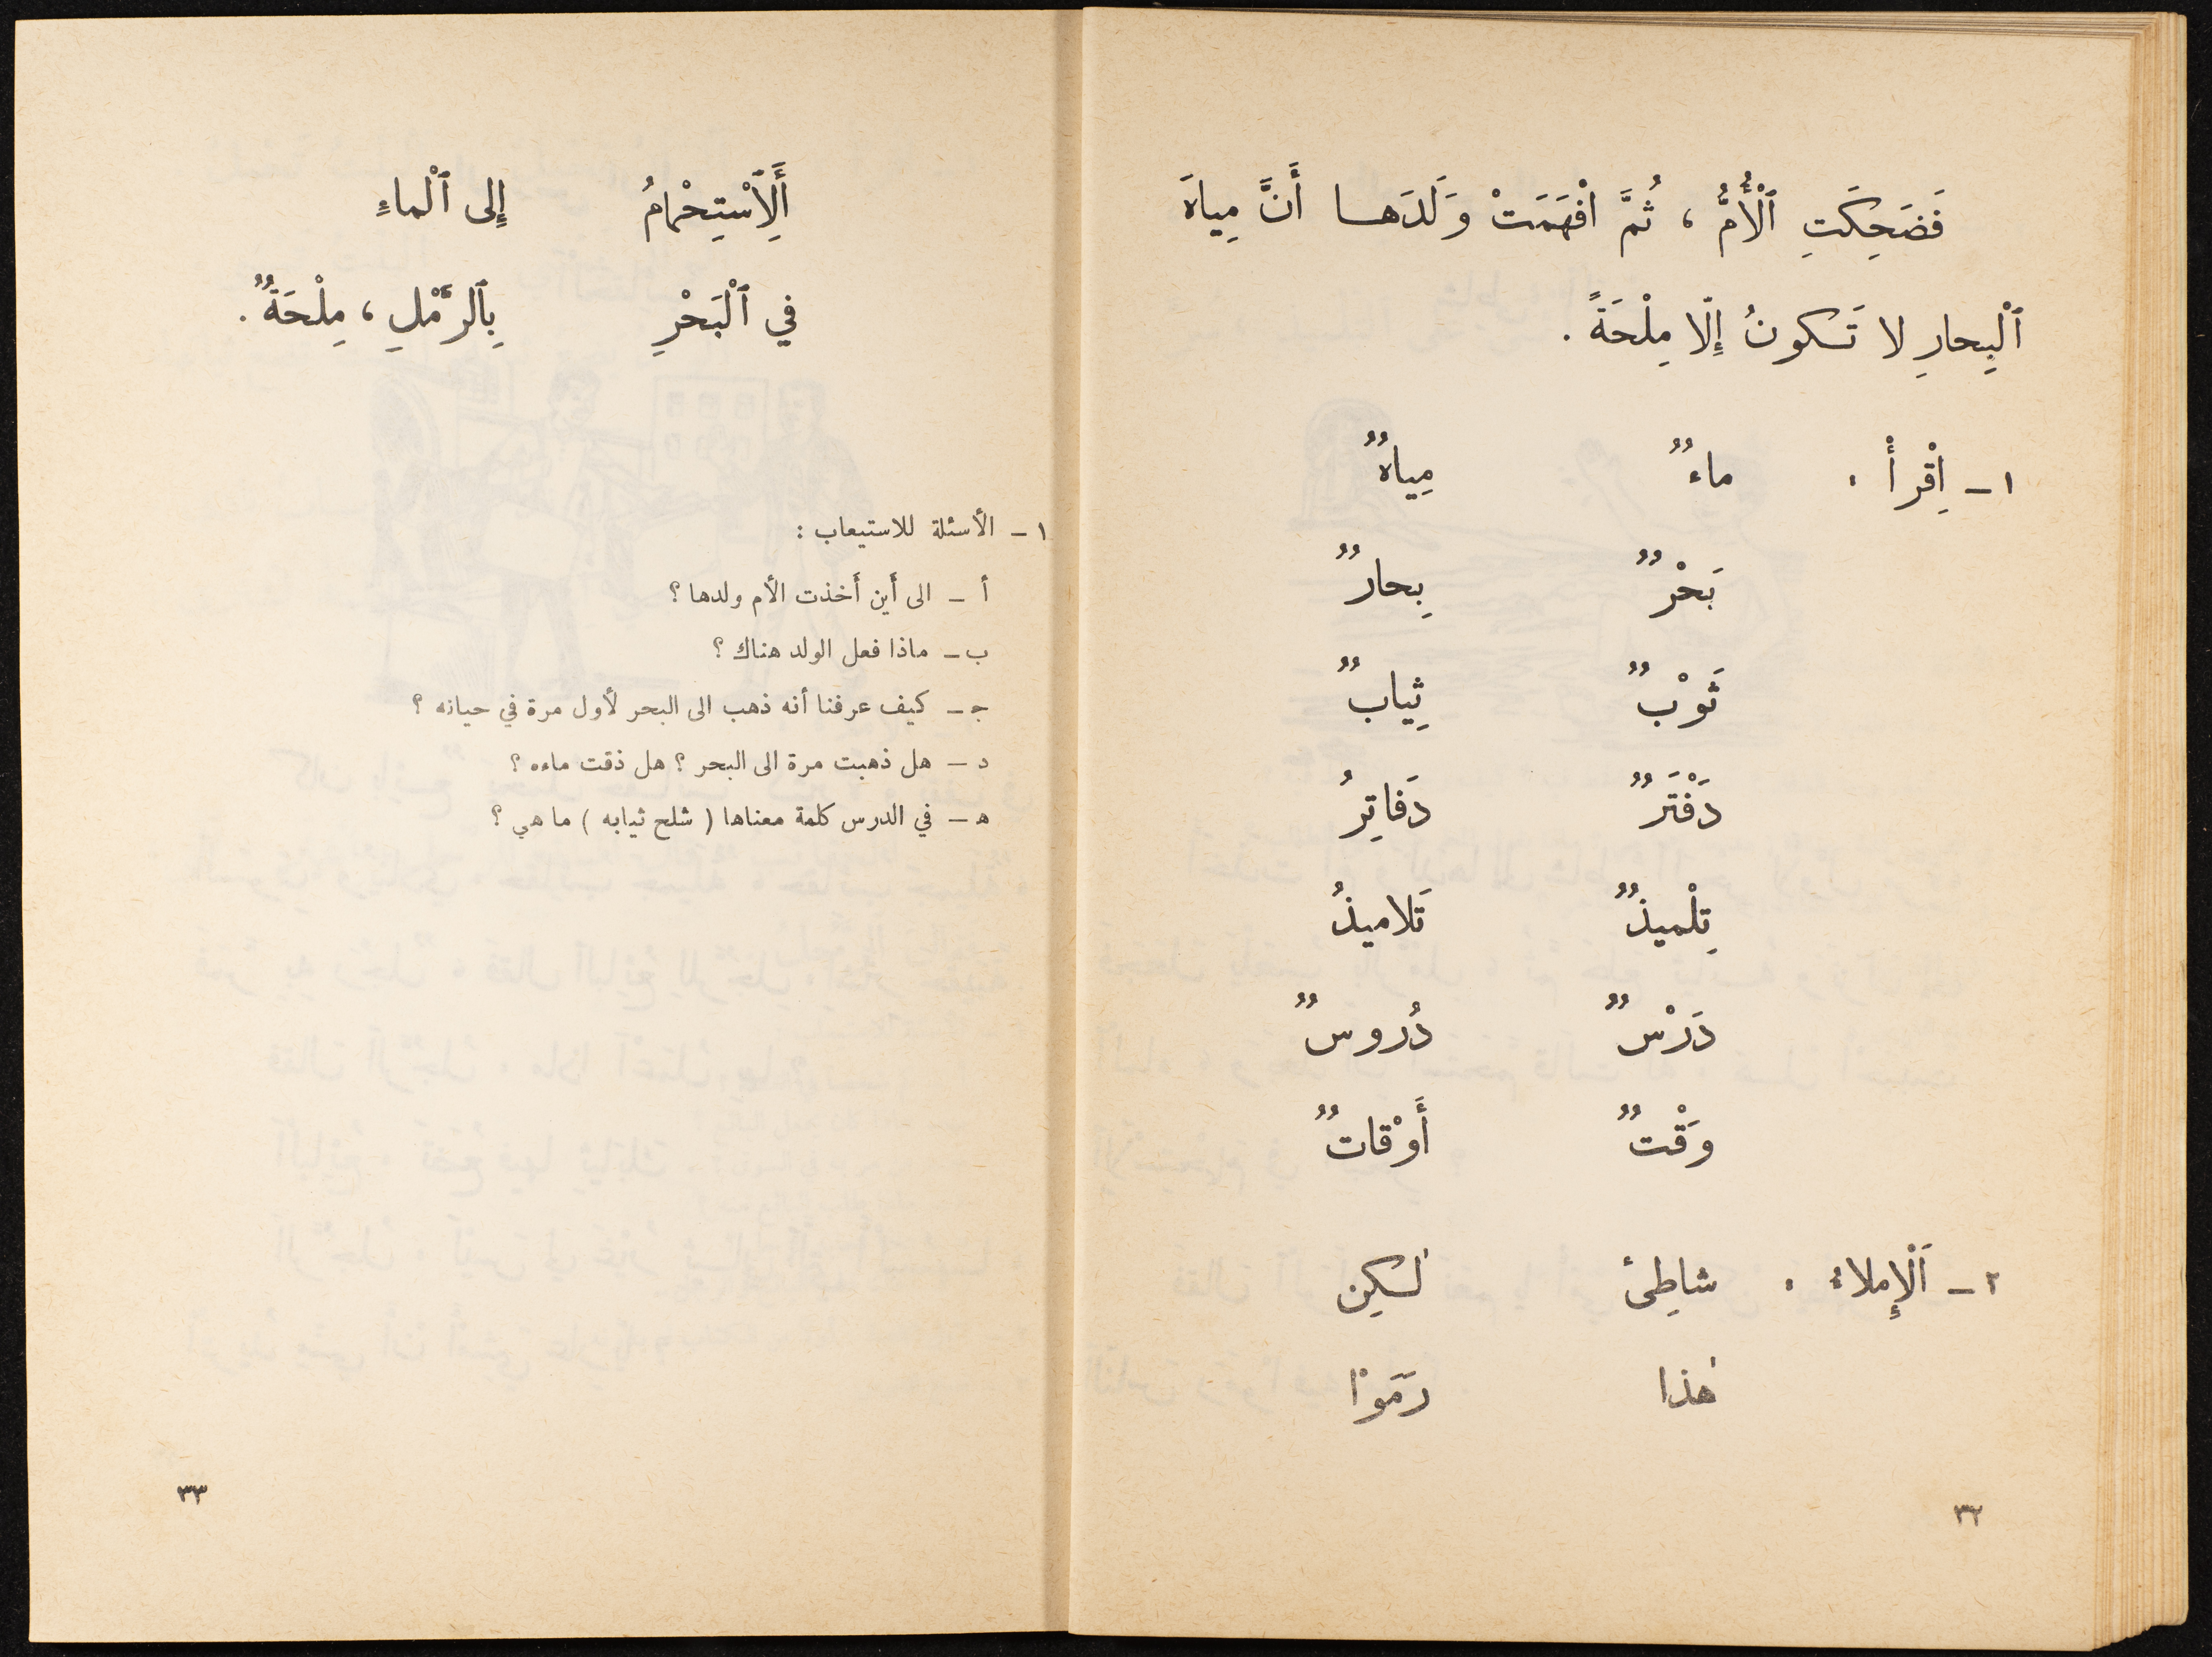 فَضَحِكَتِ ٱلْأُمُّ ، ثُمَّ افْهَمَتْ وَلَدَهـا أَنَّ مِياهَ
ٱلْبِحارِ لا تَكونُ إِلّا مِلْحَةً .
١ – اِقْرأْ : ماءٌ مِياهٌ
بَحْرٌ بِحارٌ
ثَوْبٌ ثِيابٌ
دَفْتَرٌ دَفاتِرُ
تِلْميذٌ تَلاميذُ
دَرْسٌ دُروسٌ
وَقْتٌ أَوْقاتٌ
٢ – اَلْإِملاءُ : شاطِئ لٰكِن
هٰذا رَمَوْا
٣٢
أَلِٱسْتِحْمامُ إِلى ٱلْماءِ
في ٱلْبَحْرِ بِٱلرَّمْلِ ، مِلْحَةٌ .
١ – الأسئلة للاستيعاب :
أ – الى أَين أَخذت الأم ولدها ؟
ب – ماذا فعل الولد هناك ؟
جـ – كيف عرفنا أنه ذهب الى البحر لأول مرة في حياته ؟
د – هل ذهبت مرة الى البحر ؟ هل ذقت ماءه ؟
هـ – في الدرس كلمة معناها ( شلح ثيابه ) ما هي ؟
٣٣